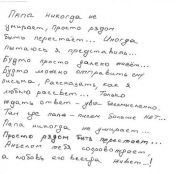 Папа никогда не
умирает, просто рядом
быть перестает... Иногда
пытаюсь я представить...
Будто просто далеко живет...
Будто можно отправить ему
письма Рассказать, как я
люблю рассвет... Только
ждать ответ - увы бессмысленно.
Там где папа - писем больше нет...
Папа никогда не умирает...
Просто рядом быть перестает...
Ангелом тебя сопровождает,
а любовь его всегда живет...!